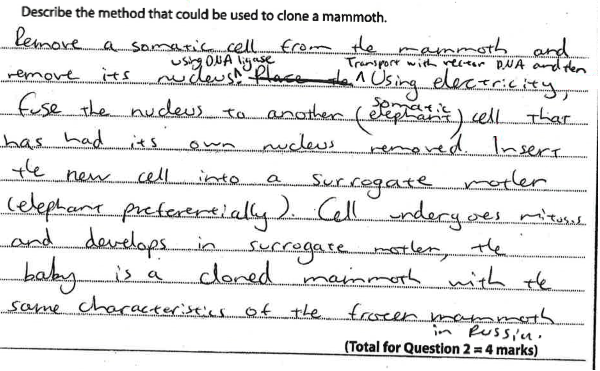 Describe the method that could be used to clone a mammoth.
Remove a somatic cell from the mammoth and
using DNA ligase Transport with vector DNA and then
remove its nucleus. Place Using electricity,
somatic
fuse the nucleus to another (elephant) cell that
has had its own nucleus removed. Insert
the new cell into a surrogate mother
(elephant preferentially). Cell undergoes mitosis
and develops in surrogate mother, the
baby is a cloned mammoth with the
same characteristics of the frozen mammoth
in Russia.
(Total for Question 2 = 4 marks)